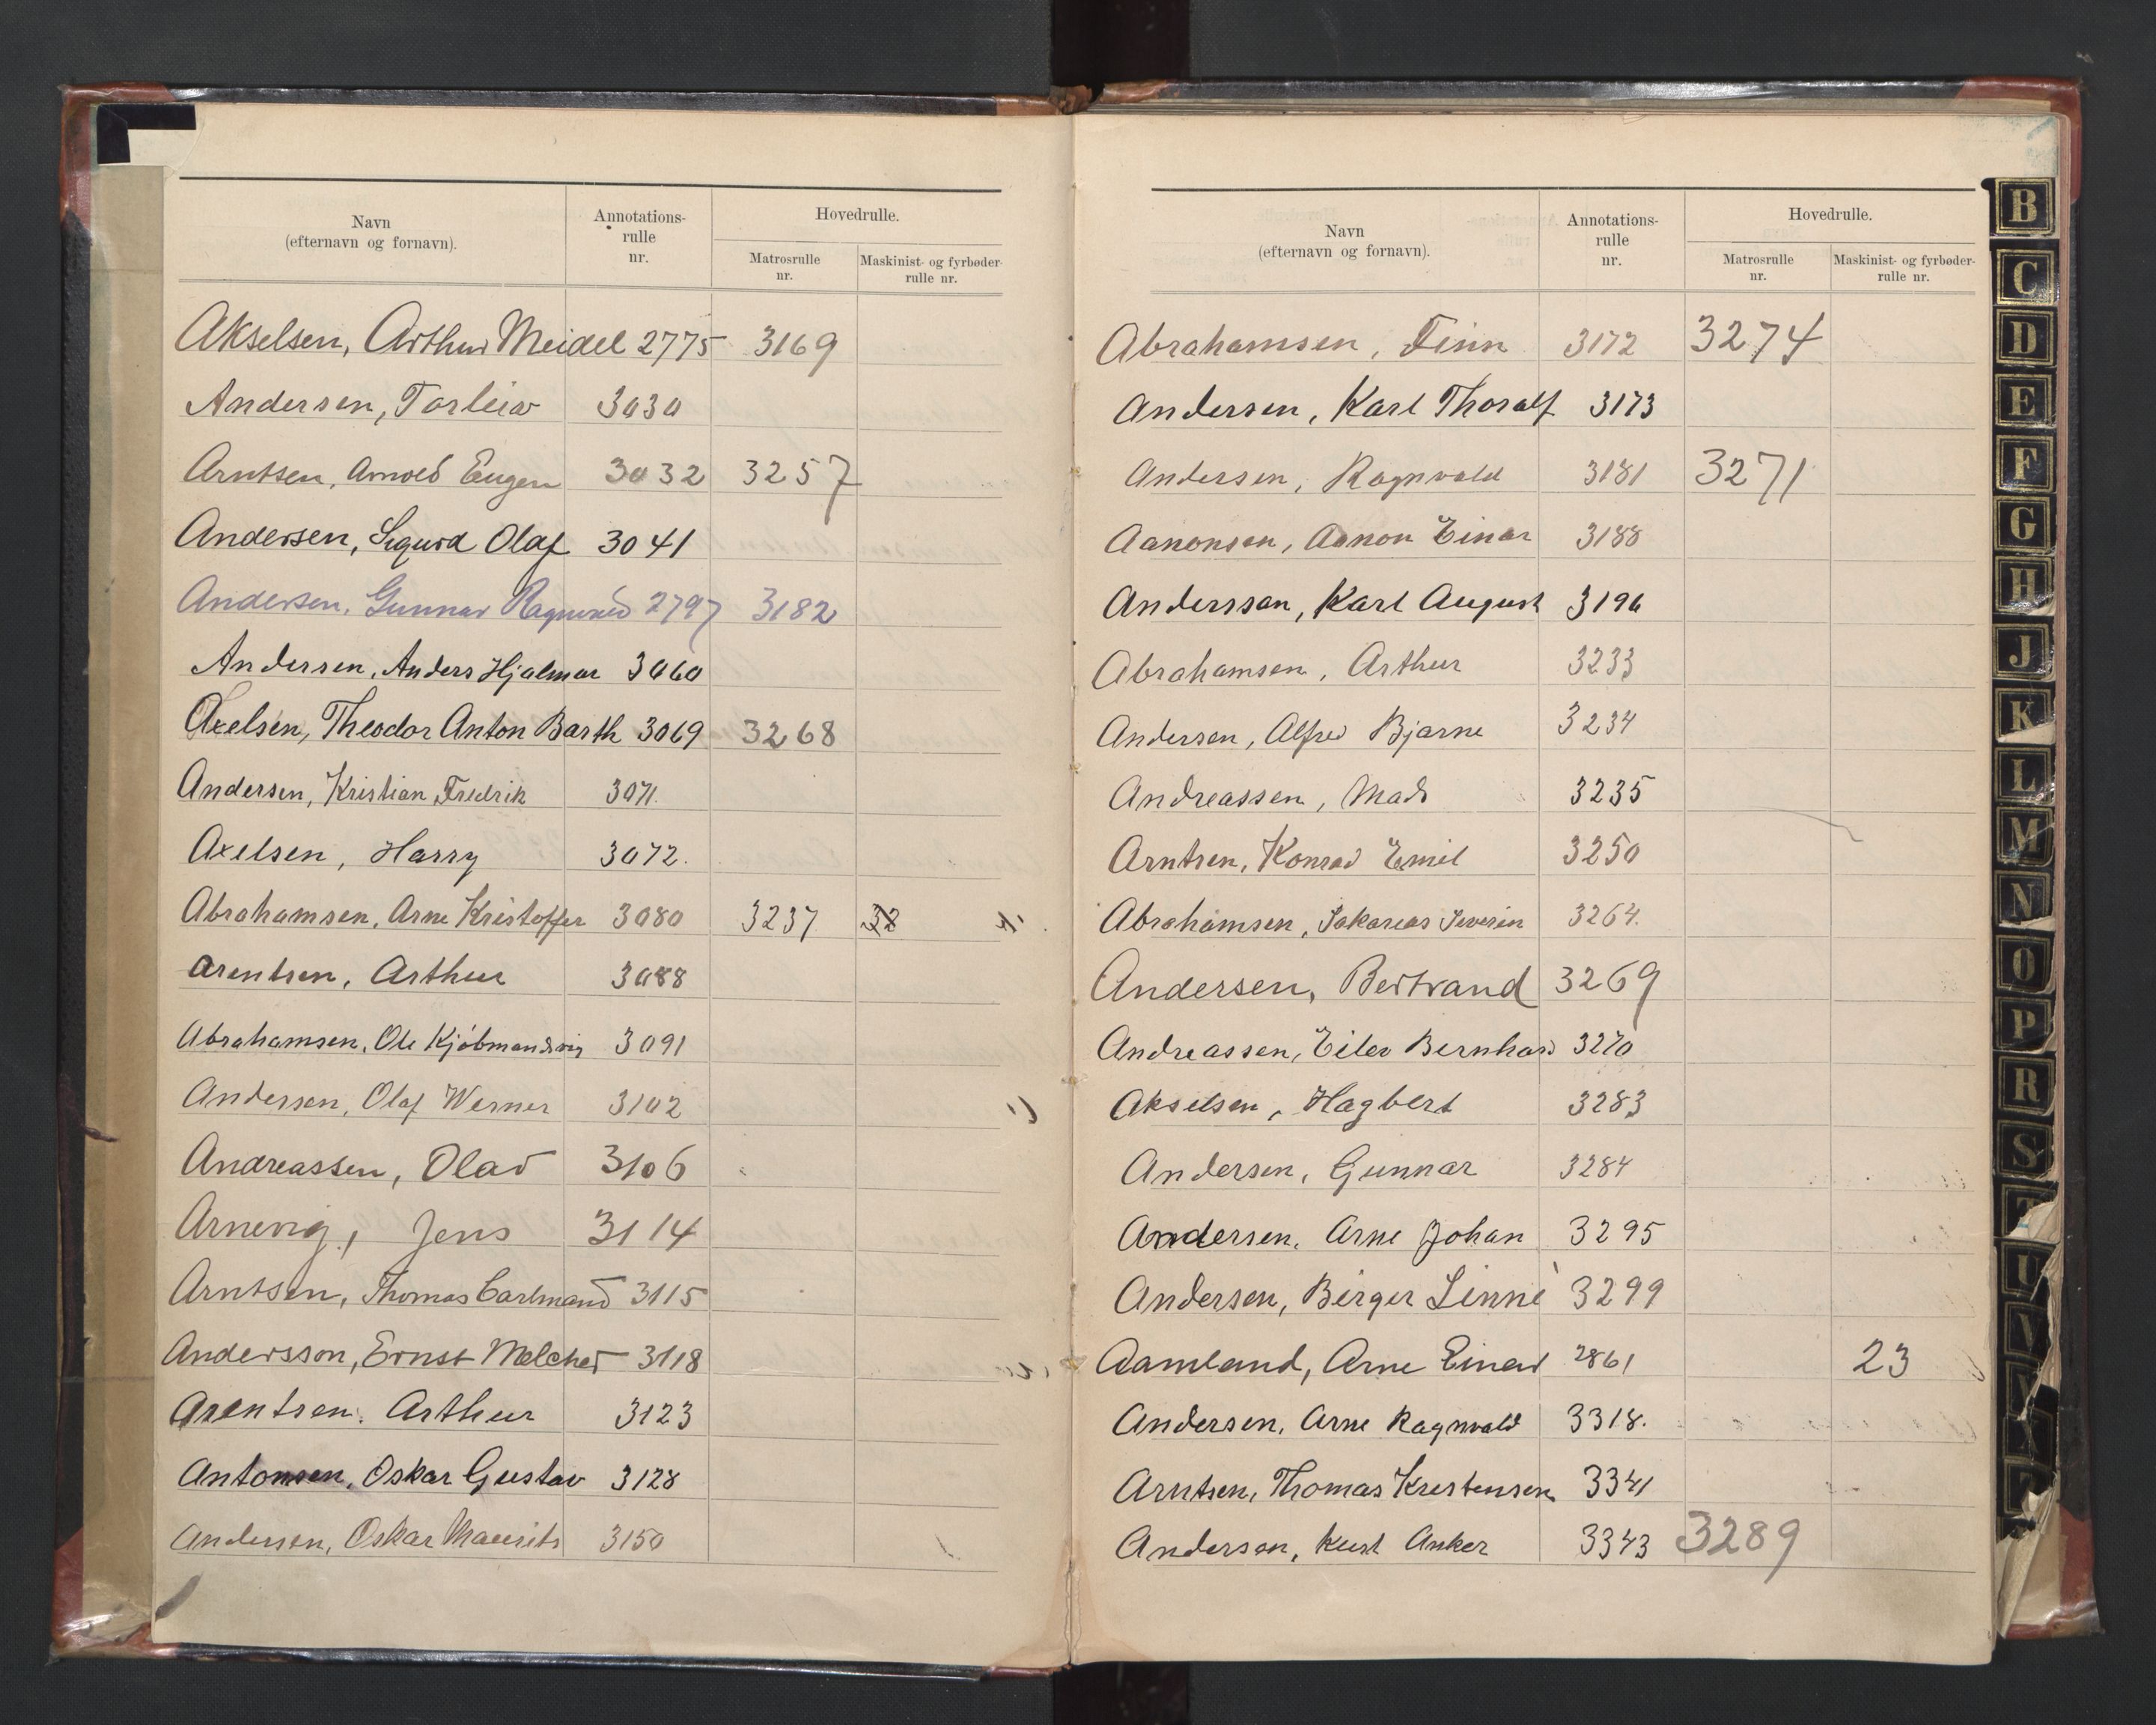 Navn
(efternavn og fornavn).
Annotations-
rulle
nr.
Hovedrulle.
Matrosrulle
nr.
Maskinist- og fyrbøder-
rulle nr.
Akselsen, Arthur Meidel 2775 3169
Andersen, Torleiv 3030
Arntsen, Arnold Eugen 3032 3257
Andersen, Sigurd Olaf 3041
Andersen, Gunnar Ragnvald 2797 3182
Andersen, Anders Hjalmar 3060
Axelsen, Theodor Anton Barth 3069 3268
Andersen, Kristian Fredrik 3071.
Axelsen, Harry 3072.
Abrahamsen, Arne Kristoffer 3080 3237 32
Arentsen, Arthur 3088
Abrahamsen, Ole Kjøbmandsvig 3091
Andersen, Olaf Werner 3102
Andreassen, Olav 3106
Arnevig, Jens 3114
Arntsen, Thomas Carlmand 3115
Andersson, Ernst Melcher 3118
Arentsen, Arthur 3123
Antonsen, Oskar Gustav 3128
Andersen, Oskar Maurits 3150
Navn
(efternavn og fornavn).
Annotations-
rulle
nr.
Hovedrulle.
Matrosrulle
nr.
Maskinist- og fyrbøder-
rulle nr.
Abrahamsen, Finn 3172 3274
Andersen, Karl Thoralf 3173
Andersen, Ragnvald 3181 3271
Aanonsen, Aanon Einar 3188
Andersson, Karl August 3196
Abrahamsen, Arthur 3233
Andersen, Alfred Bjarne 3234
Andreassen, Mads 3235
Arntsen, Konrad Emil 3250
Abrahamsen, Sakarias Severin 3264.
Andersen, Bertrand 3269
Andreassen, Eilev Bernhard 3270
Akselsen, Hagbert 3283
Andersen, Gunnar 3284
Andersen, Arne Johan 3295
Andersen, Birger Linné 3299
Aamland, Arne Einar 2861 23
Andersen, Arne Ragnvald 3318.
Arntsen, Thomas Kristensen 3341
Andersen, Kurt Anker 3343 3289
B
C
D
E
F
G
H
J
K
L
M
N
O
P
R
S
T
U
V